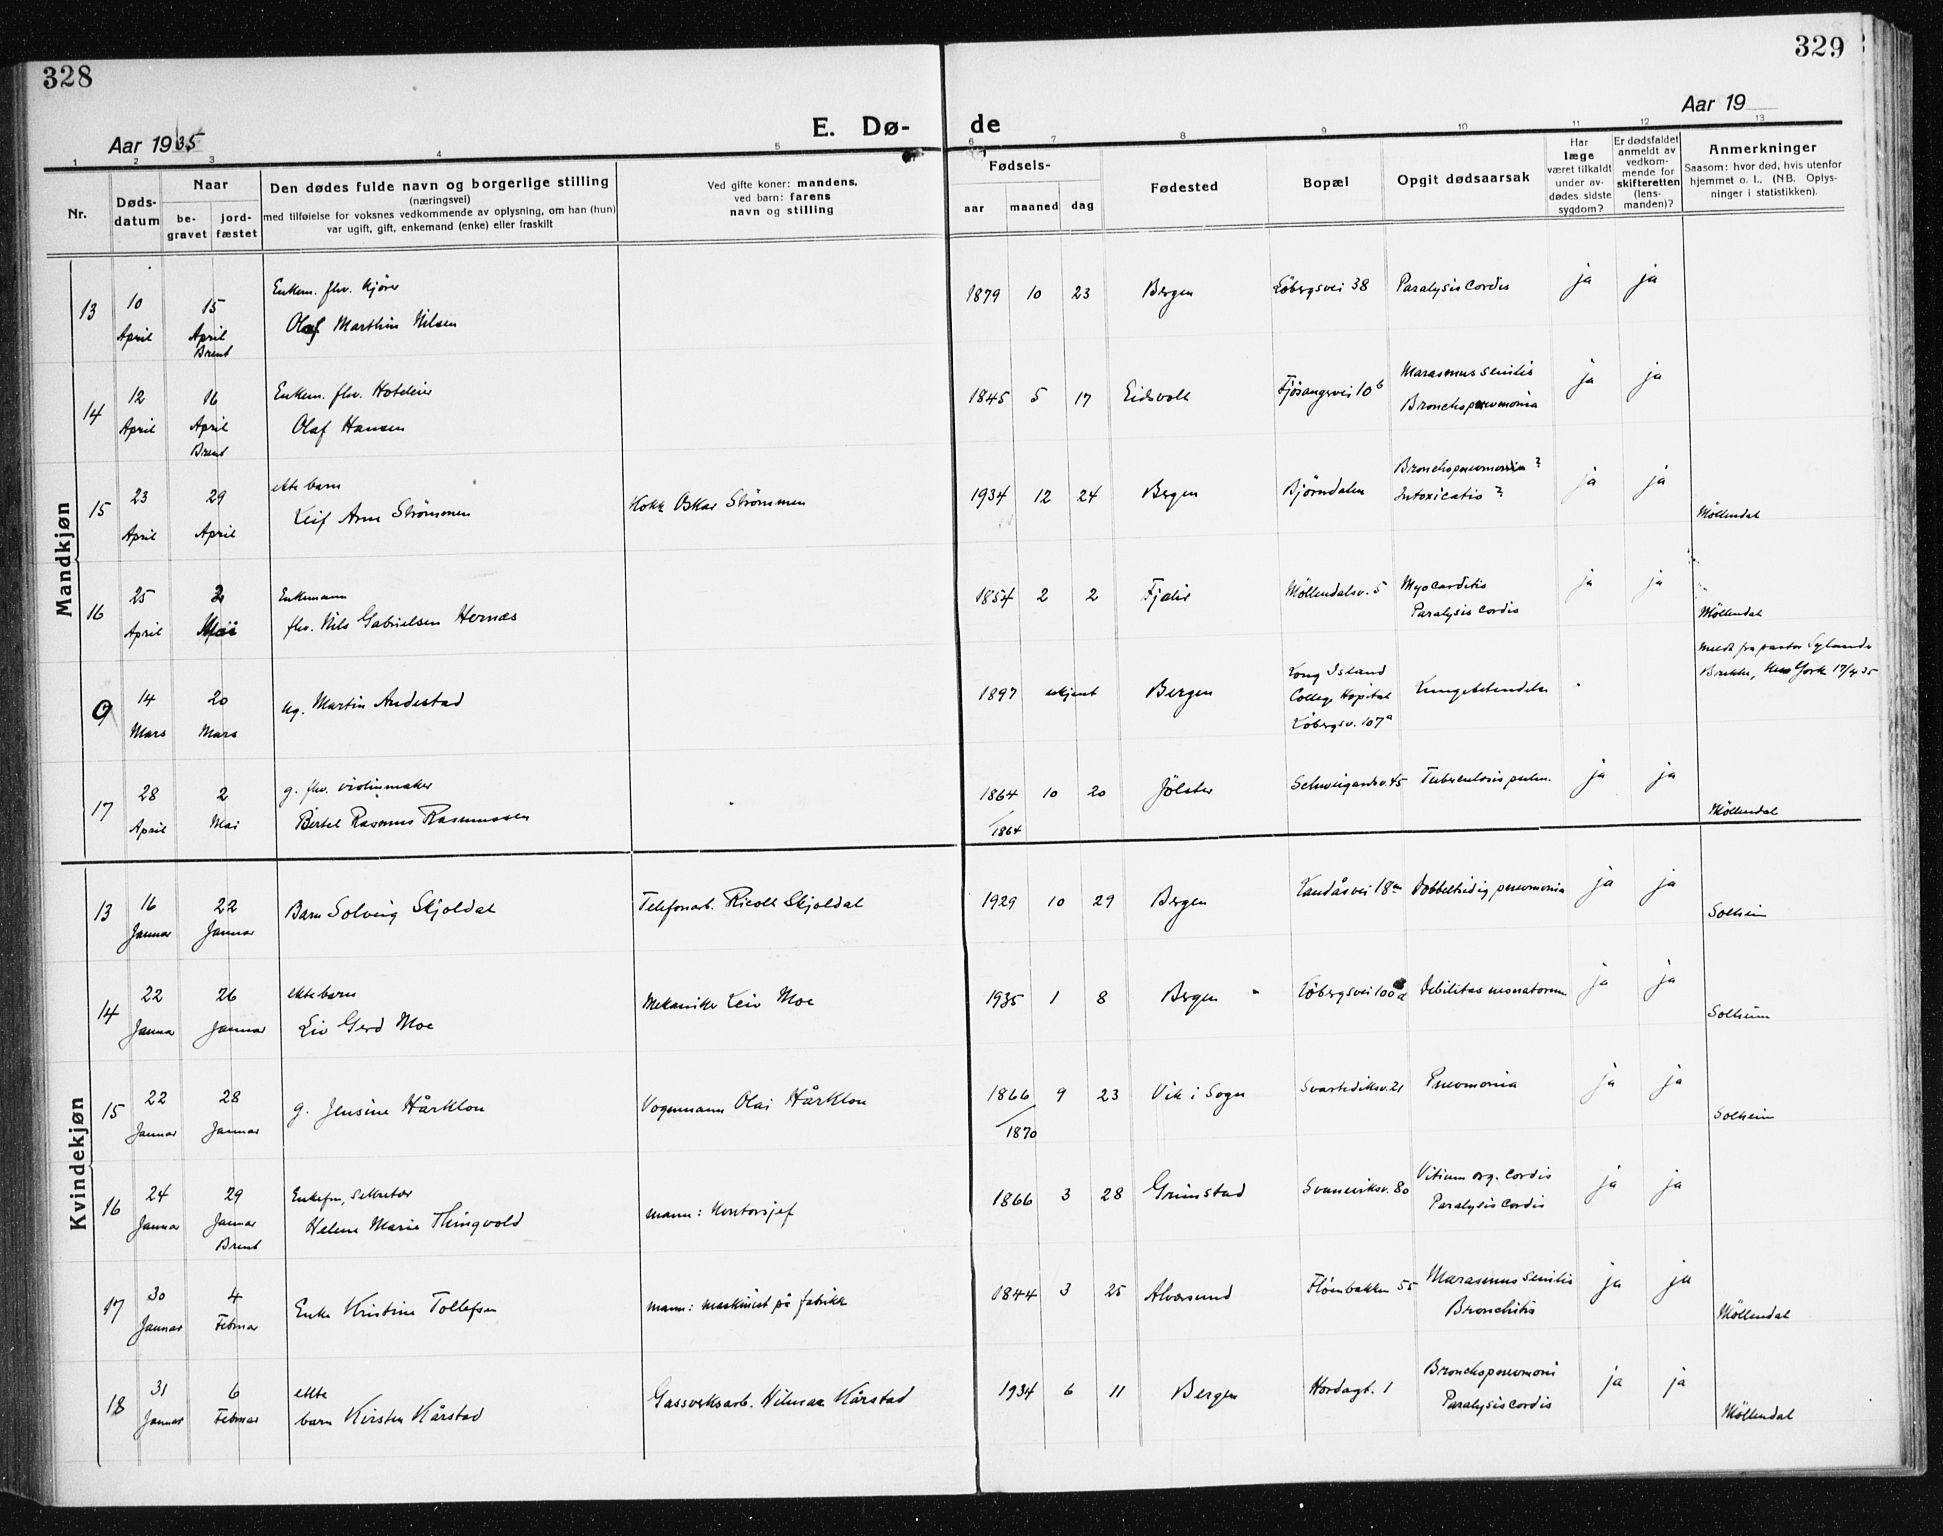 328
329
Aar 1935
E. Dø- de
Aar 19
1 2 3 4 5 6 7 8 9 10 11 12 13
Nr.
Dødsdatum
Naar
begravet
jordfæstet
Den dødes fulde navn og borgerlige stilling
(næringsvei)
med tilføielse for voksnes vedkommende av oplysning, om han (hun)
var ugift, gift, enkemand (enke) eller fraskilt
Ved gifte koner: mandens,
ved barn: farens
navn og stilling
Fødsels-
aar maaned dag
Fødested
Bopæl
Opgit dødsaarsak
Har
læge
været tilkaldt
under av-
dødes sidste
sygdom?
Er dødsfaldet
anmeldt av
vedkom-
mende for
skifteretten
(lens-
manden)?
Anmerkninger
Saasom: hvor død, hvis utenfor
hjemmet o. l., (NB. Oplys-
ninger i statistikken).
Mandkjøn
13 10 April 15 April Brent Enkem. fhv. kjører
Olaf Marthin Nilsen 1879 10 23 Bergen Løbergsvei 38 Paralysis cordis ja ja
14 12 April 16 April Brent Enkem. fhv. Hoteleier
Olaf Hansen 1845 5 17 Eidsvoll Fjøsangervei 10b Marasmus senilis
Bronchopneumonia ja ja
15 23 April 29 April ekte barn
Leif Arne Strömmen Kokk Oskar Strömmen 1934 12 24 Bergen Bjørndalen Bronchopneumonia ?
Intoxicatio ? ja ja Møllendal
16 25 April 2 Mai Enkemann
fhv. Nils Gabrielsen Hernæs 1854 2 2 Fjaler Møllendalsv. 5 Myocarditis
Paralysis cordis ja ja Møllendal
9 14 Mars 20 Mars ug. Martin Andestad 1897 ukjent Bergen Long Island
College Hospital
Løbergsv. 107a Lungebetendelse Meldt fra pastor
New York 17/4 35
17 28 April 2 Mai g. fhv. violinmaker
Bertel Rasmus Rasmussen 1864
/1864 10 20 Jølster Schweigaardsv. 45 Tuberculosis pulm. ja ja Møllendal
Kvindekjøn
13 16 Januar 22 Januar Barn Solveig Skjoldal Telefonarb. Skjoldal 1929 10 29 Bergen Landåsvei 18 Dobbeltsidig pneumonia ja ja Solheim
14 22 Januar 26 Januar ekte barn
Liv Gerd Moe Mekaniker Leiv Moe 1935 1 8 Bergen Løbergsvei 100 Debilitas neonatorum ja ja Solheim
15 22 Januar 28 Januar g. Jensine Hårklou Vognmann Olai Hårklou 1866
/1870 9 23 Vik i Sogn Svartediksv. 21 Pneumonia ja ja Solheim
16 24 Januar 29 Januar Brent Enkefru, sekretær
Helene Marie Thingvold mann: kontorsjef 1866 3 28 Grimstad Svaneviksv. 80 Vitium org. cordis
Paralysis cordis ja ja
17 30 Januar 4 Februar Enke Kristine Tollefsen mann: maskinist på fabrikk 1844 3 25 Alversund Fløenbakken 55 Marasmus senilis
Bronchitis ja ja Møllendal
18 31 Januar 6 Februar ekte
barn Kirsten Kårstad Gassverksarb. Hilmar Kårstad 1934 6 11 Bergen Hordagt. 1 Bronchopneumoni
Paralysis cordis ja ja Møllendal